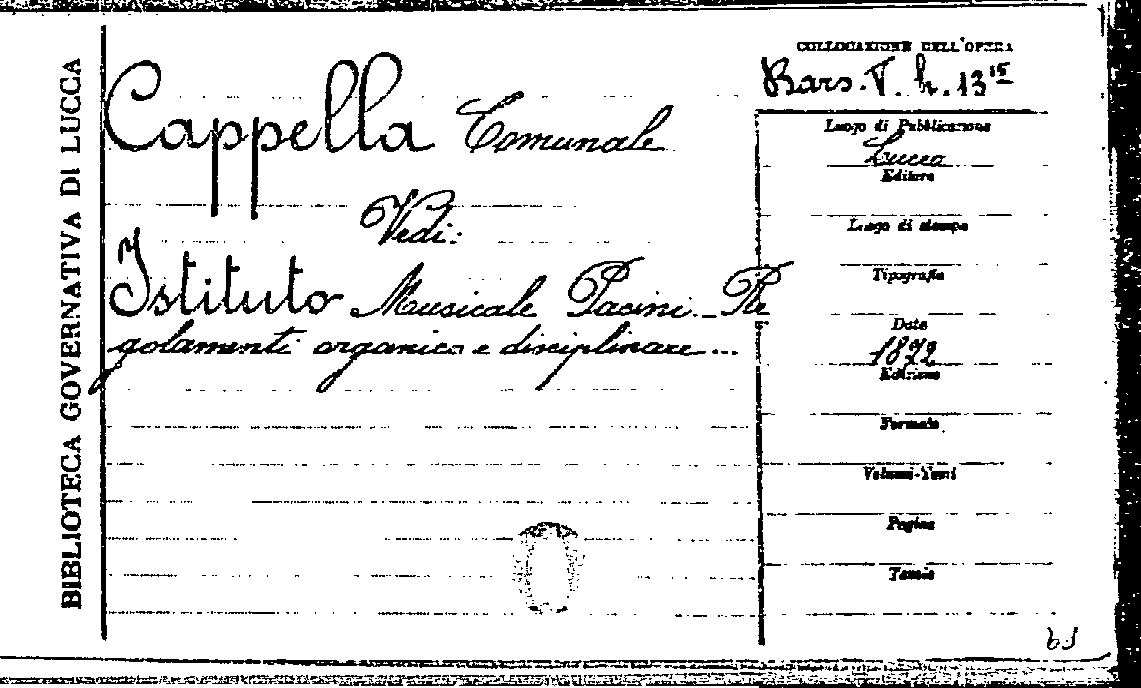 BIBLIOTECA GOVERNATIVA DI LUCCA
Cappella Comunale
Vedi:
Istituto Musicale Pacini. Re
golamenti organico e disciplinare...
COLLOCAZIONE DELL'OPERA
Bars. T. h. 13¹⁵
Luogo di Pubblicazione
Lucca
Editore
Luogo di stampa
Tipografia
Data
1872
Edizione
Formato
Volumi-Tomi
Pagine
Tavole